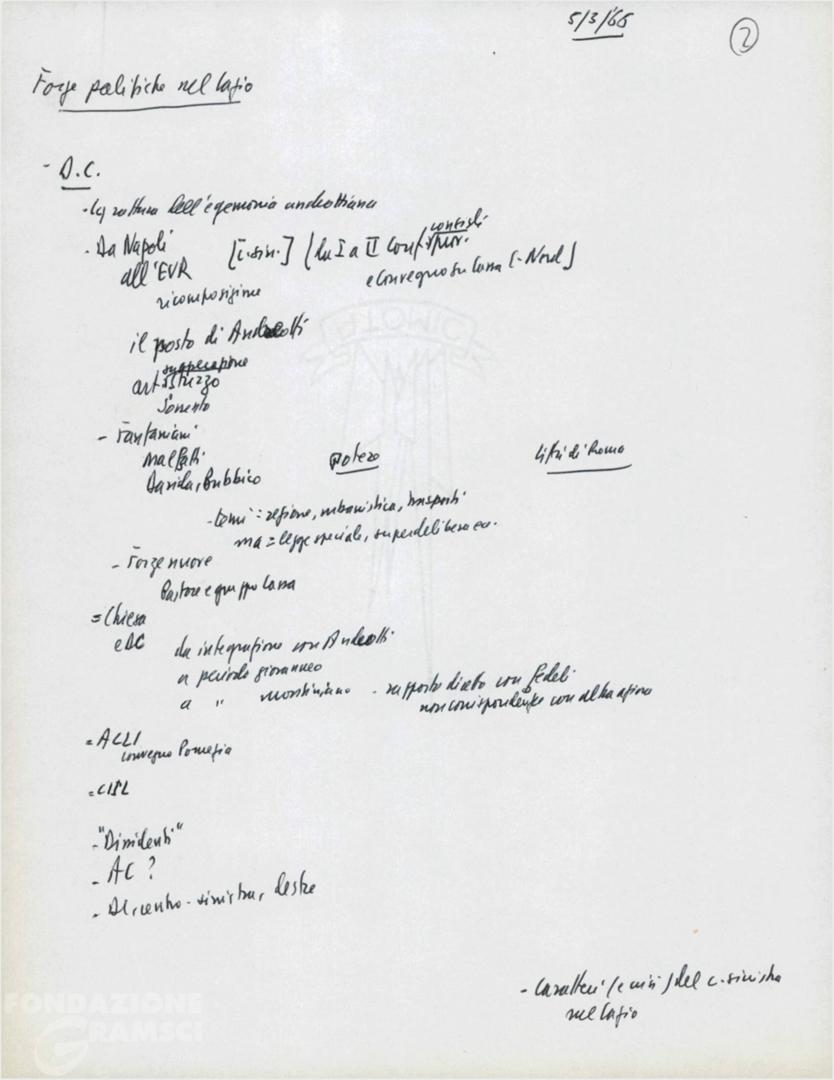 5/3/66
2
Forze politiche nel Lazio
- D.C.
- la rottura dell'egemonia andreottiana
- Da Napoli [c. sin.] (da I a II Conf.
consigli
all'EUR
e Convegno su Cassa [-Nord]
ricomposizione
il posto di Andreotti
Sorrento
- Fanfaniani
Malfatti potere Città di Roma
Darida, Bubbico
- temi: regione, urbanistica, trasporti
ma = legge speciale, superdelibera ecc.
- Forze nuove
Pastore e gruppo Cassa
= Chiesa
e DC da integrazione con Andreotti
a periodo giovanneo
a " montiniano - rapporto diretto con fedeli
non corrispondente con altra azione
= ACLI
convegno Pomezia
= CISL
- "Dissidenti"
- AC ?
- DC, centro-sinistra, destre
- Caratteri (e crisi) del c. sinistra
nel Lazio
FONDAZIONE
GRAMSCI